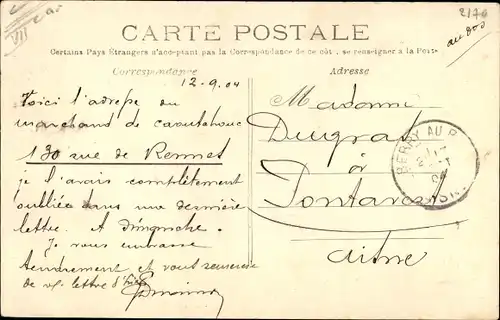 2170
au dos
VII
CARTE POSTALE
Certains Pays Étrangers n'acceptant pas la Correspondance de ce côté, se renseigner à la Poste
Correspondance
Adresse
12-9.04
Voici l'adresse du
marchand de caoutchouc
130 rue de Rennes
je l'avais complètement
oubliée dans une dernière
lettre. A Dimanche.
Je vous embrasse
tendrement et vous remercie
de vs lettre d'hier
Madame
à
Pontavert
Aisne
BERRY AU B